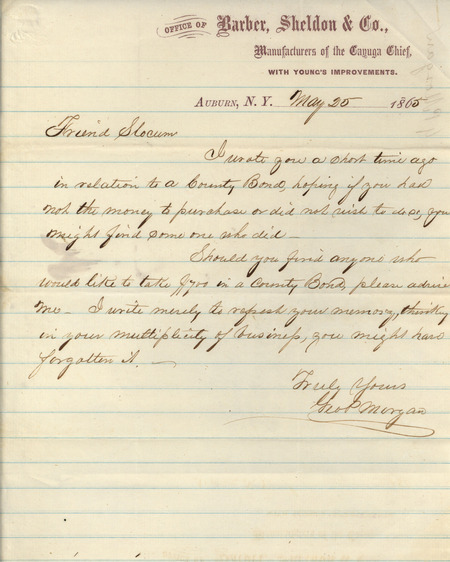 OFFICE OF Barber, Sheldon & Co.,
Manufacturers of the Cayuga Chief,
WITH YOUNG'S IMPROVEMENTS.
AUBURN, N. Y. May 25 1865
Friend Slocum
I wrote you a short time ago
in relation to a County Bond, hoping if you had
not the money to purchase or did not wish to do so, you
might find some one who did —
Should you find anyone who
would like to take $700 in a County Bond, please advise
me — I write merely to refresh your memory, thinking
in your multiplicity of business, you might have
forgotten it. —
Truly Yours
Geo P Morgan